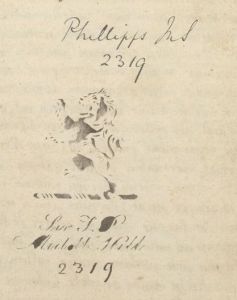 Phillipps MS
2319
Sir T. P
Middle Hill
2319